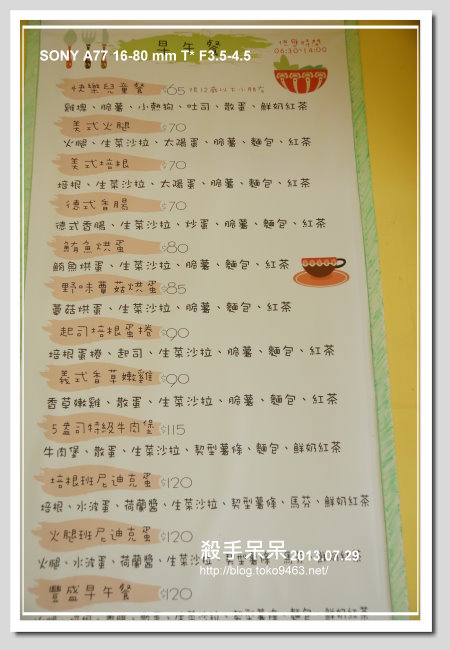 早午餐
供應時間
06:30-14:00
SONY A77 16-80 mm T* F3.5-4.5
快樂兒童餐 $65 限12歲以下小朋友
雞塊、脆薯、小熱狗、吐司、散蛋、鮮奶紅茶
美式火腿 $70
火腿、生菜沙拉、太陽蛋、脆薯、麵包、紅茶
美式培根 $70
培根、生菜沙拉、太陽蛋、脆薯、麵包、紅茶
德式香腸 $70
德式香腸、生菜沙拉、炒蛋、脆薯、麵包、紅茶
鮪魚烘蛋 $80
鮪魚烘蛋、生菜沙拉、脆薯、麵包、紅茶
野味蕈菇烘蛋 $85
蕈菇烘蛋、生菜沙拉、脆薯、麵包、紅茶
起司培根蛋捲 $90
培根蛋捲、起司、生菜沙拉、脆薯、麵包、紅茶
義式香草嫩雞 $90
香草嫩雞、散蛋、生菜沙拉、脆薯、麵包、紅茶
5盎司特級牛肉堡 $115
牛肉堡、散蛋、生菜沙拉、契型薯條、麵包、鮮奶紅茶
培根班尼迪克蛋 $120
培根、水波蛋、荷蘭醬、生菜沙拉、契型薯條、馬芬、鮮奶紅茶
火腿班尼迪克蛋 $120
火腿、水波蛋、荷蘭醬、生菜沙拉、契型薯條、馬芬、鮮奶紅茶
殺手呆呆 2013.07.29
http://blog.toko9463.net/
豐盛早午餐 $120